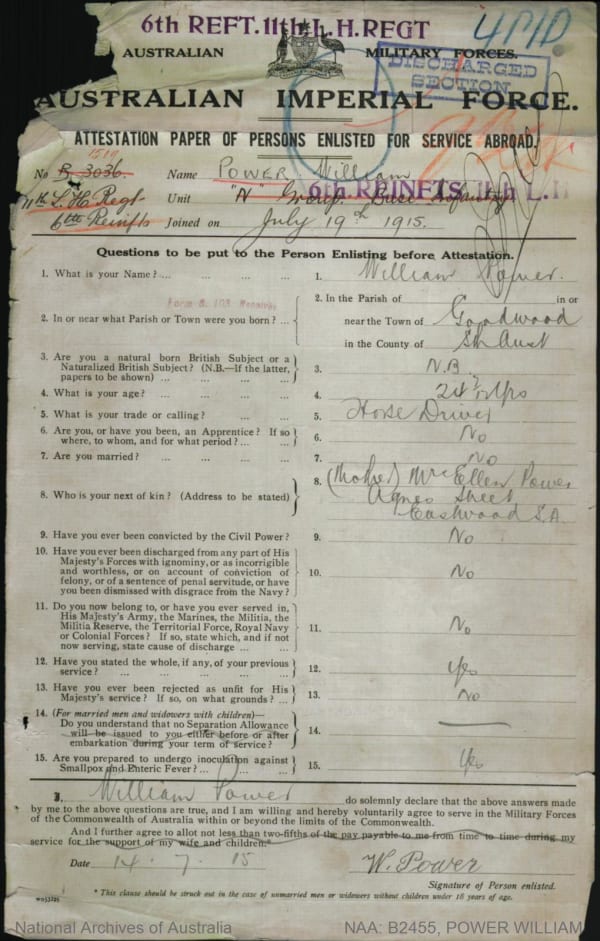 6th REFT. 11th L.H. REGT
AUSTRALIAN MILITARY FORCES.
DISCHARGED
SECTION
AUSTRALIAN IMPERIAL FORCE.
ATTESTATION PAPER OF PERSONS ENLISTED FOR SERVICE ABROAD.
No B 3036. Name POWER William
11th L. H. Regt Unit "N" Group. Base Infantry
6th REINFTS 11th L.H
6th Reinfts Joined on July 19th 1915.
Questions to be put to the Person Enlisting before Attestation.
1. What is your Name? ... ... ... ... 1. William Power.
2. In or near what Parish or Town were you born? ... 2. In the Parish of in or
near the Town of Goodwood
in the County of Sth Aust
3. Are you a natural born British Subject or a
Naturalized British Subject? (N.B.—If the latter,
papers to be shown) ... ... ... ... 3. N.B
4. What is your age? ... ... ... ... 4. 24
5. What is your trade or calling? ... ... ... 5. Horse Driver
6. Are you, or have you been, an Apprentice? If so
where, to whom, and for what period? ... ... 6. No
7. Are you married? ... ... ... ... 7. No
8. Who is your next of kin? (Address to be stated) 8. (Mother) Mrs Ellen Power
Agnes Street
Eastwood S.A.
9. Have you ever been convicted by the Civil Power? 9. No
10. Have you ever been discharged from any part of His
Majesty's Forces with ignominy, or as incorrigible
and worthless, or on account of conviction of
felony, or of a sentence of penal servitude, or have
you been dismissed with disgrace from the Navy? 10. No
11. Do you now belong to, or have you ever served in,
His Majesty's Army, the Marines, the Militia, the
Militia Reserve, the Territorial Force, Royal Navy
or Colonial Forces? If so, state which, and if not
now serving, state cause of discharge ... ... 11. No
12. Have you stated the whole, if any, of your previous
service? ... ... ... ... ... 12. Yes
13. Have you ever been rejected as unfit for His
Majesty's service? If so, on what grounds? ... 13. No
14. (For married men and widowers with children)—
Do you understand that no Separation Allowance
will be issued to you either before or after
embarkation during your term of service? 14. —
15. Are you prepared to undergo inoculation against
Smallpox and Enteric Fever? ... ... ... 15. Yes
I, William Power do solemnly declare that the above answers made
by me to the above questions are true, and I am willing and hereby voluntarily agree to serve in the Military Forces
of the Commonwealth of Australia within or beyond the limits of the Commonwealth.
And I further agree to allot not less than two-fifths of the pay payable to me from time to time during my
service for the support of my wife and children.*
Date 14. 7. 15 W. Power
Signature of Person enlisted.
* This clause should be struck out in the case of unmarried men or widowers without children under 18 years of age.
National Archives of Australia NAA: B2455, POWER WILLIAM